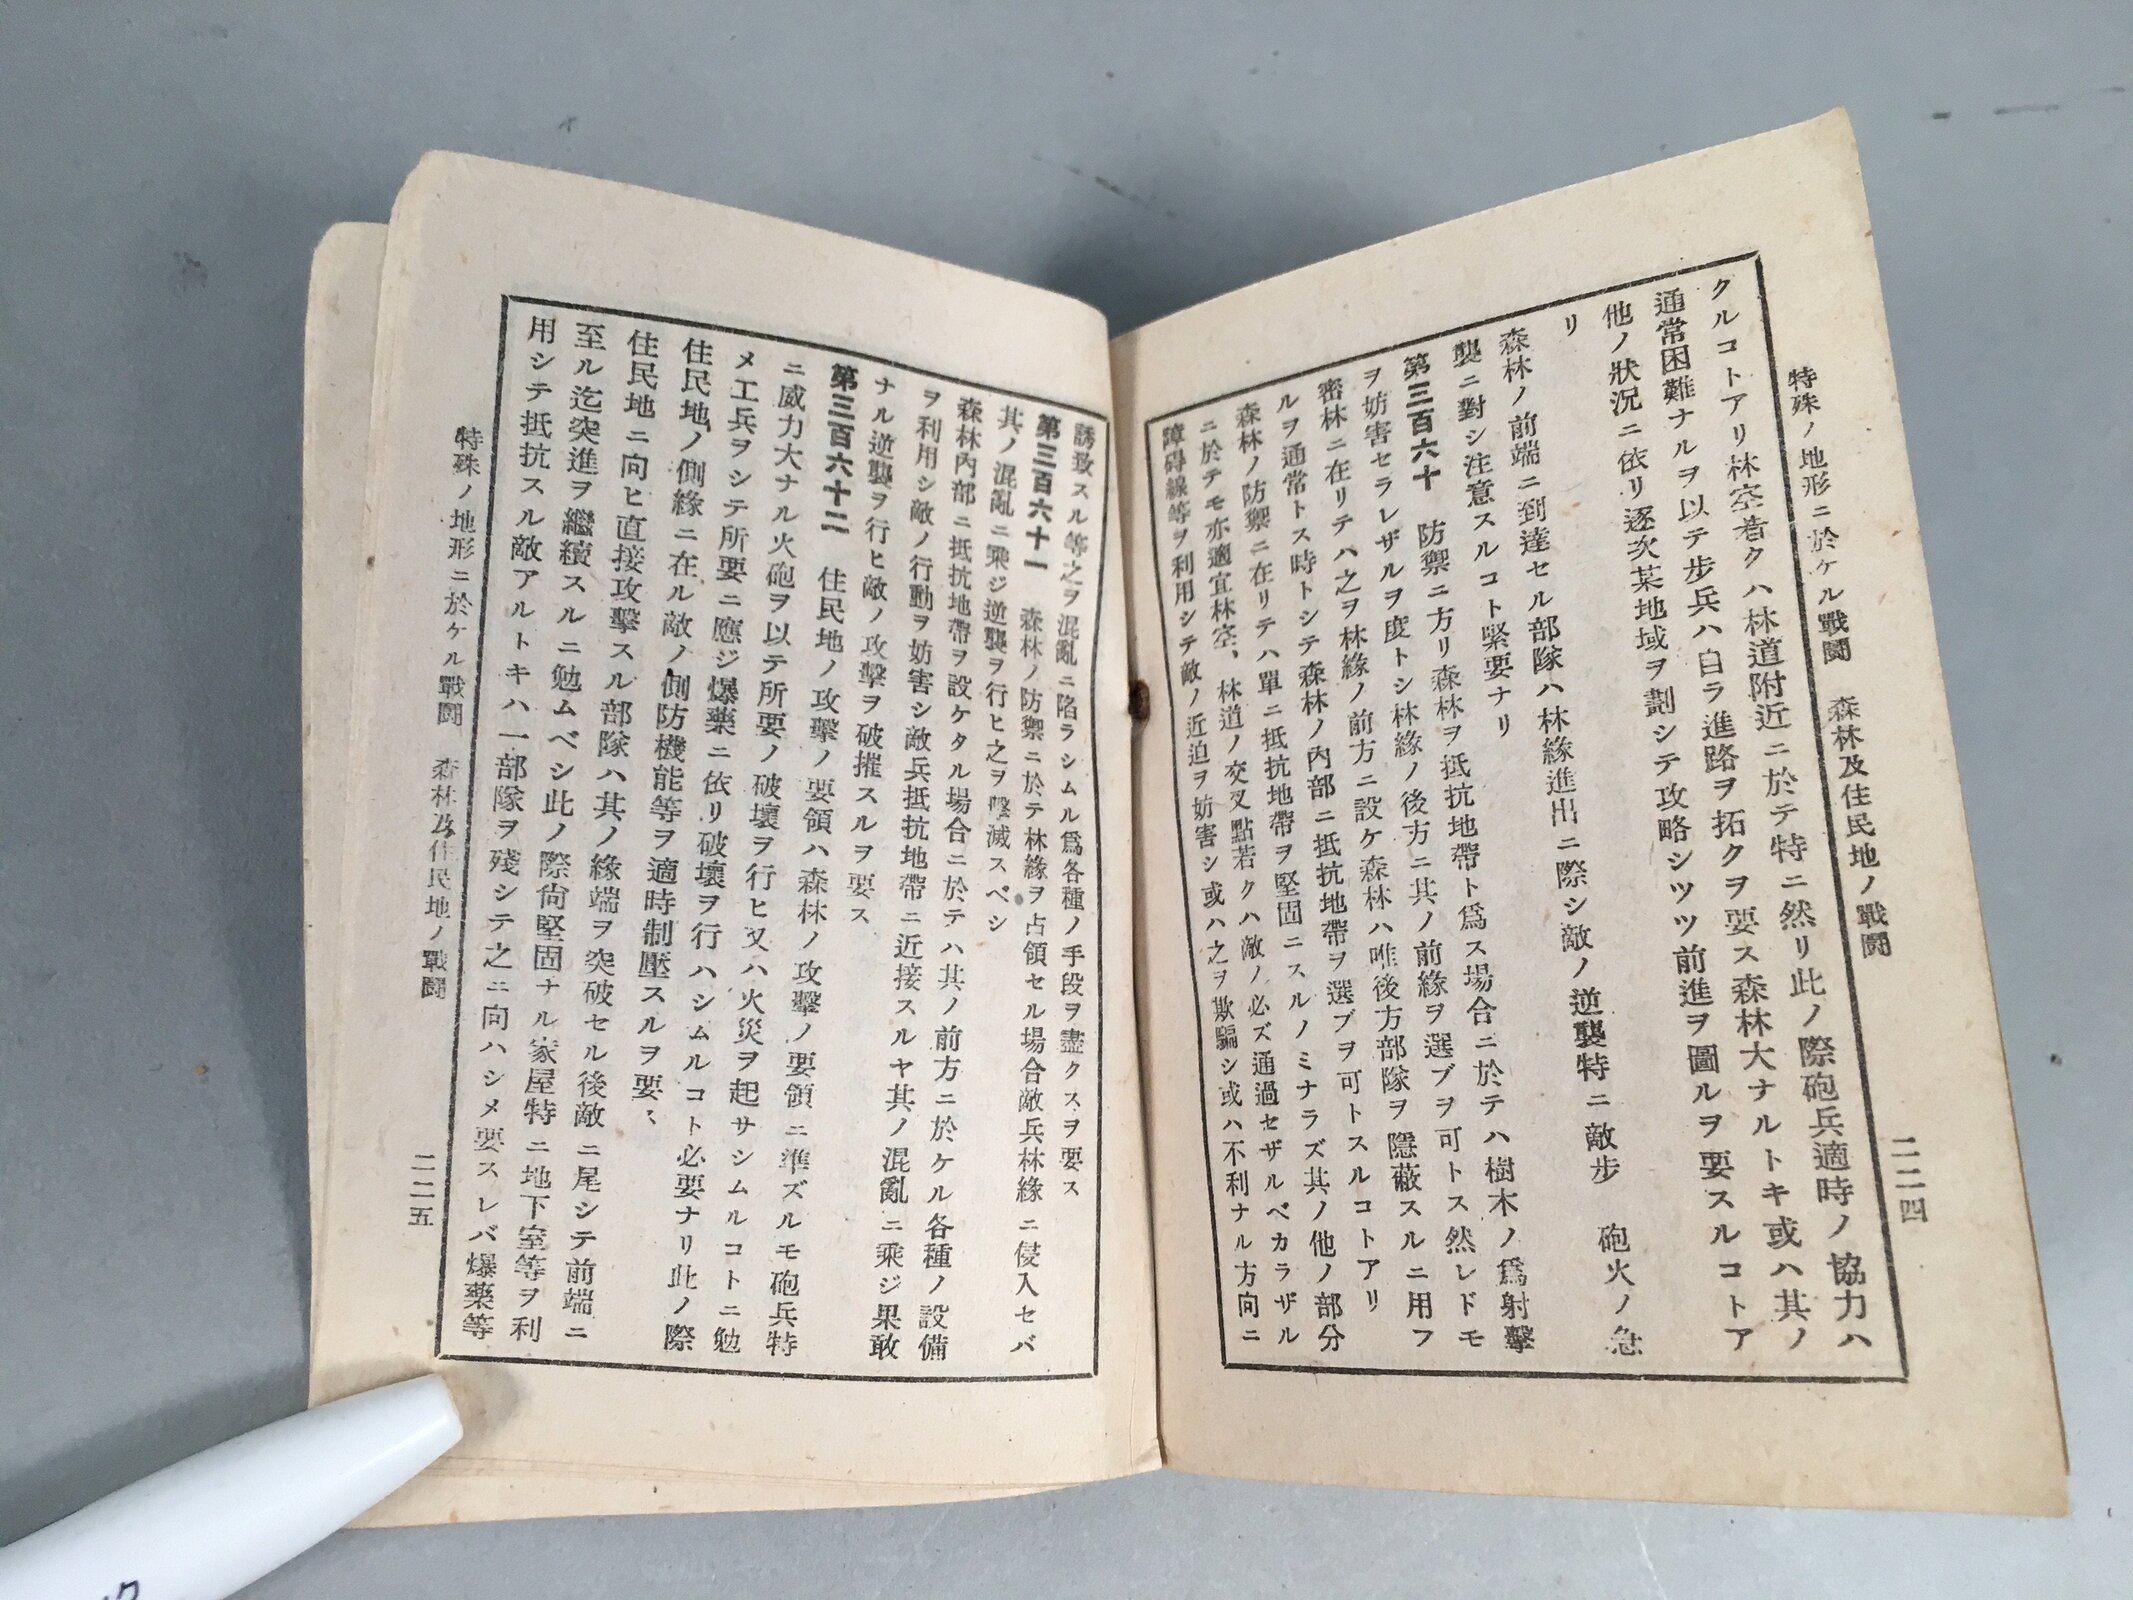 特殊ノ地形ニ於ケル戰鬪　森林及住民地ノ戰鬪
二二四
クルコトアリ林空若クハ林道附近ニ於テ特ニ然リ此ノ際砲兵適時ノ協力ハ
通常困難ナルヲ以テ步兵ハ自ラ進路ヲ拓クヲ要ス森林大ナルトキ或ハ其ノ
他ノ狀況ニ依リ逐次某地域ヲ劃シテ攻略シツツ前進ヲ圖ルヲ要スルコトア
リ
森林ノ前端ニ到達セル部隊ハ林緣進出ニ際シ敵ノ逆襲特ニ敵步　砲火ノ急
襲ニ對シ注意スルコト緊要ナリ
第三百六十　防禦ニ方リ森林ヲ抵抗地帶ト爲ス場合ニ於テハ樹木ノ爲射擊
ヲ妨害セラレザルヲ度トシ林緣ノ後方ニ其ノ前緣ヲ選ブヲ可トス然レドモ
密林ニ在リテハ之ヲ林緣ノ前方ニ設ケ森林ハ唯後方部隊ヲ隱蔽スルニ用フ
ルヲ通常トス時トシテ森林ノ內部ニ抵抗地帶ヲ選ブヲ可トスルコトアリ
森林ノ防禦ニ在リテハ單ニ抵抗地帶ヲ堅固ニスルノミナラズ其ノ他ノ部分
ニ於テモ亦適宜林空、林道ノ交叉點若クハ敵ノ必ズ通過セザルベカラザル
障碍線等ヲ利用シテ敵ノ近迫ヲ妨害シ或ハ之ヲ欺騙シ或ハ不利ナル方向ニ
誘致スル等之ヲ混亂ニ陷ラシムル爲各種ノ手段ヲ盡クスヲ要ス
第三百六十一　森林ノ防禦ニ於テ林緣ヲ占領セル場合敵兵林緣ニ侵入セバ
其ノ混亂ニ乘ジ逆襲ヲ行ヒ之ヲ擊滅スベシ
森林內部ニ抵抗地帶ヲ設ケタル場合ニ於テハ其ノ前方ニ於ケル各種ノ設備
ヲ利用シ敵ノ行動ヲ妨害シ敵兵抵抗地帶ニ近接スルヤ其ノ混亂ニ乘ジ果敢
ナル逆襲ヲ行ヒ敵ノ攻擊ヲ破摧スルヲ要ス
第三百六十二　住民地ノ攻擊ノ要領ハ森林ノ攻擊ノ要領ニ準ズルモ砲兵特
ニ威力大ナル火砲ヲ以テ所要ノ破壞ヲ行ヒ又ハ火災ヲ起サシムルコトニ勉
メ工兵ヲシテ所要ニ應ジ爆藥ニ依リ破壞ヲ行ハシムルコト必要ナリ此ノ際
住民地ノ側緣ニ在ル敵ノ側防機能等ヲ適時制壓スルヲ要ス
住民地ニ向ヒ直接攻擊スル部隊ハ其ノ緣端ヲ突破セル後敵ニ尾シテ前端ニ
至ル迄突進ヲ繼續スルニ勉ムベシ此ノ際尙堅固ナル家屋特ニ地下室等ヲ利
用シテ抵抗スル敵アルトキハ一部隊ヲ殘シテ之ニ向ハシメ要スレバ爆藥等
特殊ノ地形ニ於ケル戰鬪　森林及住民地ノ戰鬪
二二五